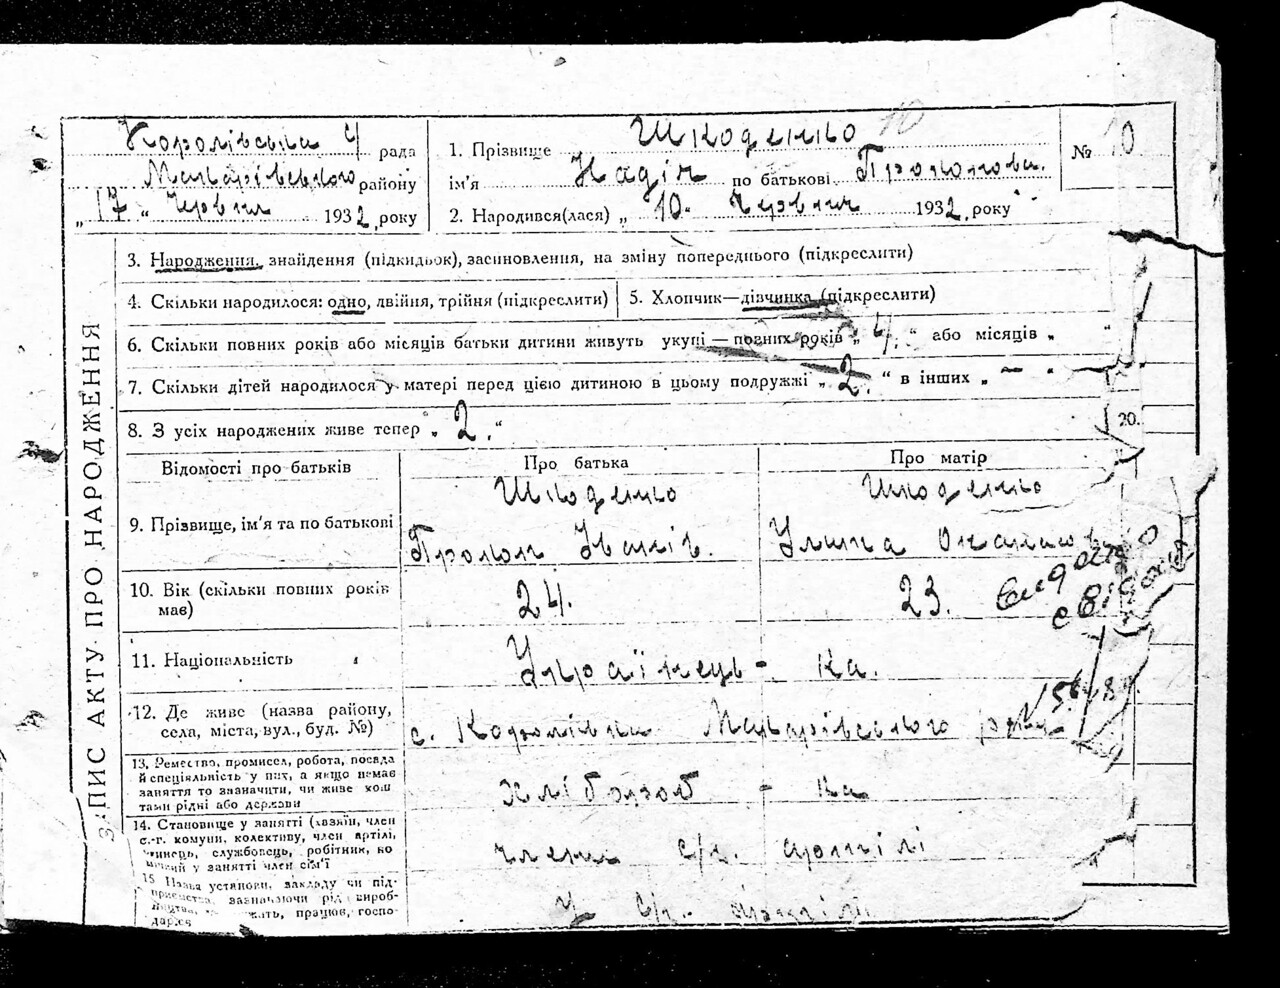 Королівська рада
Макарівського району
„ 17 " Червня 1932 року
1. Прізвище Шкоденко
ім'я Надія по батькові Прокопова.
2. Народився(лася) „ 10 " Червня 1932 року
№ 10
10
ЗАПИС АКТУ ПРО НАРОДЖЕННЯ
3. Народження, знайдення (підкидьок), засиновлення, на зміну попереднього (підкреслити)
4. Скільки народилося: одно, двійня, трійня (підкреслити)
5. Хлопчик—дівчинка (підкреслити)
6. Скільки повних років або місяців батьки дитини живуть укупі — повних років „ 4. " або місяців „ "
7. Скільки дітей народилося у матері перед цією дитиною в цьому подружжі „ 2. " в інших „ — "
8. З усіх народжених живе тепер „ 2. "
20.
Відомості про батьків
Про батька
Про матір
9. Прізвище, ім'я та по батькові
Шкоденко
Прокоп Іванів.
Шкоденко
Улита Опанасов
10. Вік (скільки повних років має)
24.
23.
видано
11. Національність
Українець - ка.
12. Де живе (назва району,
села, міста, вул., буд. №)
с. Королівка Макарівського рай
13. Ремество, промисел, робота, посада
й спеціяльність у них, а якщо немає
заняття то зазначити, чи живе кош
тами рідні або держави
хлібороб - ка
14. Становище у занятті (хазяїн, член
с.-г. комуни, колективу, член артілі,
службовець, робітник, по
у занятті член сім'ї
член с/г. артілі
15 Назва установи, закладу чи під-
приємства, зазначаючи рід вироб-
ництва, працює, госпо-
дарсв
У с/г. артілі